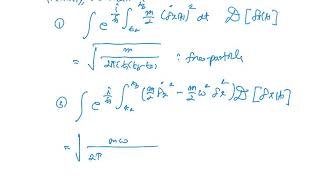 ① ∫ e^{i/ħ ∫_{t_a}^{t_b} m/2 (δẋ(t))² dt} 𝒟[δx(t)]
= √(m / 2πiħ(t_b-t_a)) : free-particle
② ∫ e^{i/ħ ∫_{t_a}^{t_b} (m/2 δẋ² - m/2 ω² δx²)} 𝒟[δx(t)]
= √(mω / 2π